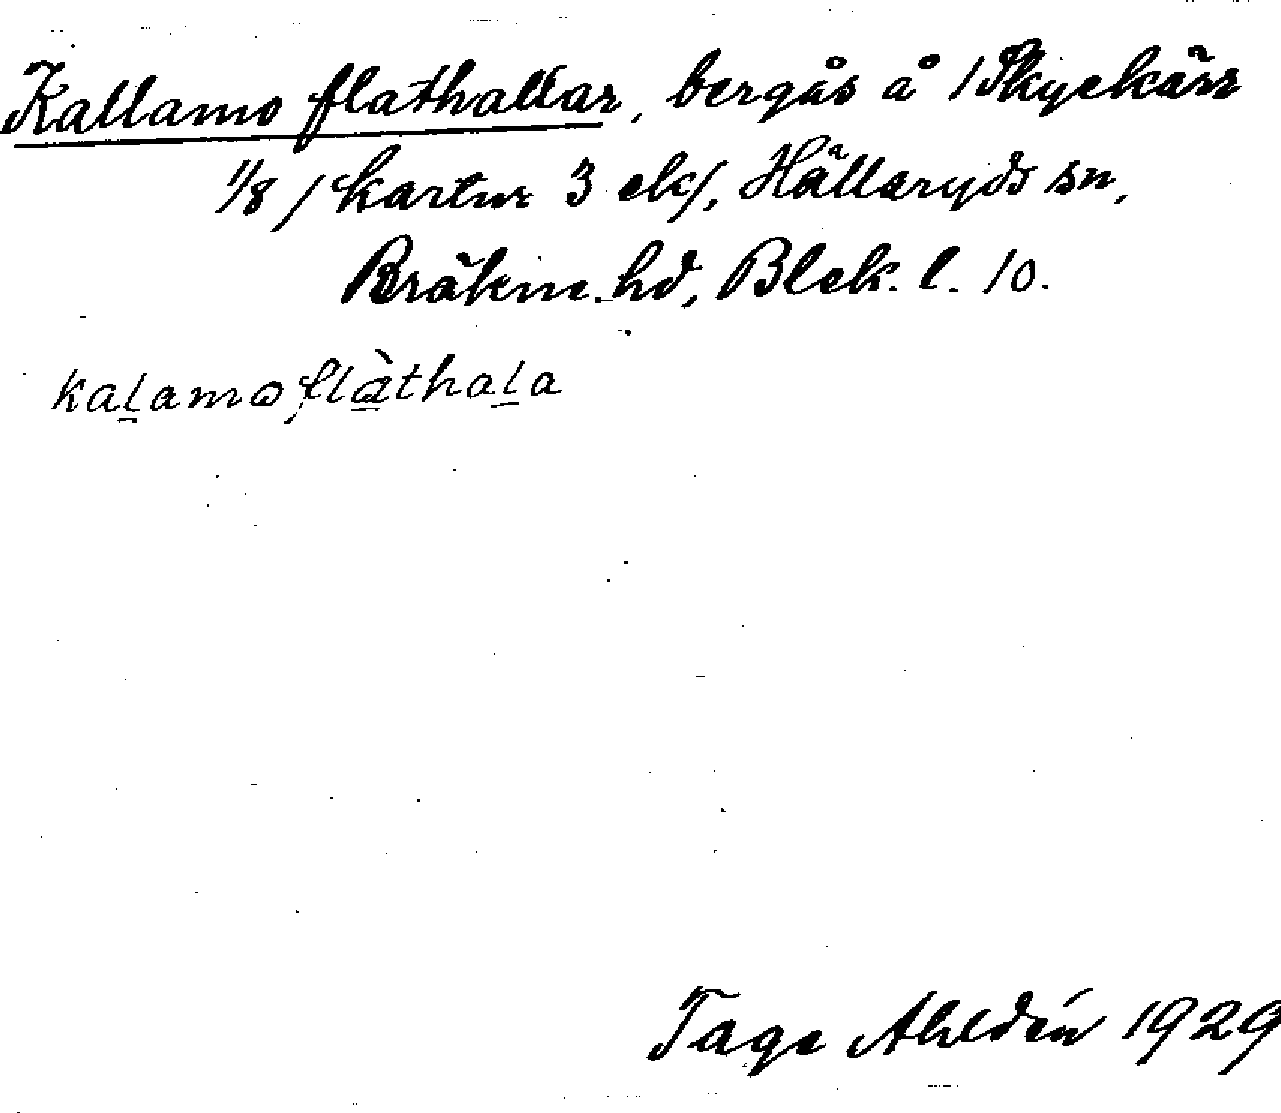 Kallamo flathallar, bergås å 1 Skyekärr
1/8 / kartnr 3 ek/, Hällaryds sn,
Bräkne hd, Blek. l. 10.
kalamoflàthala
Tage Ahldén 1929